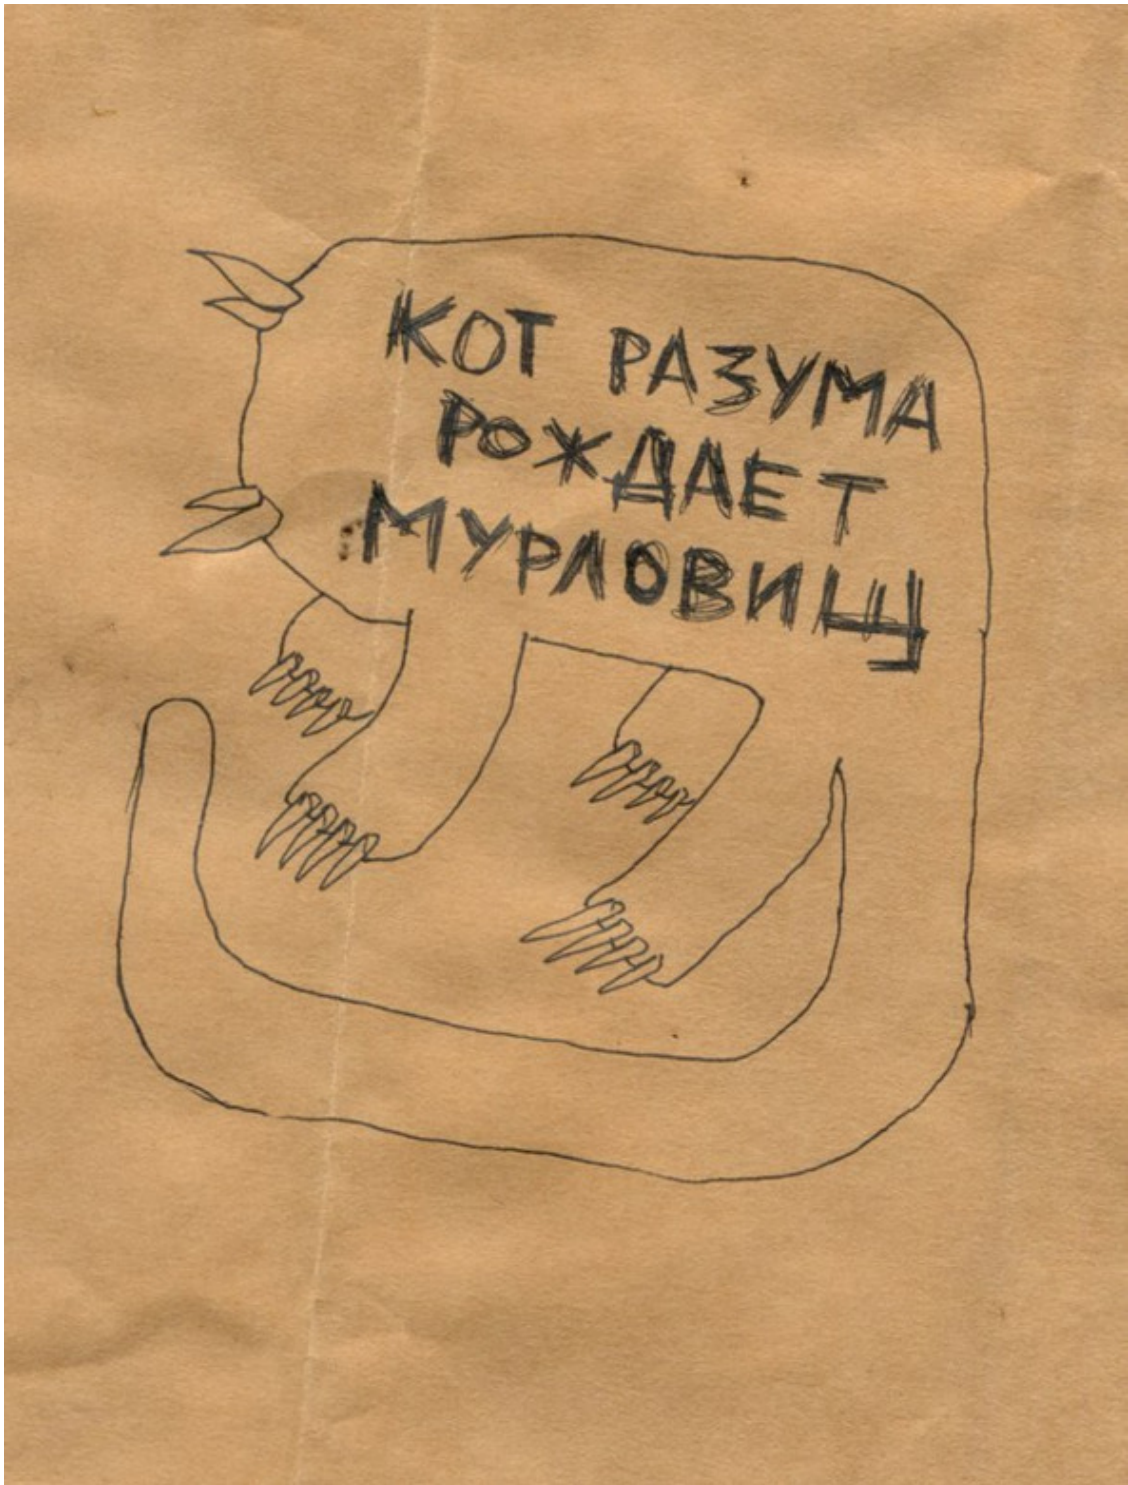 КОТ РАЗУМА
РОЖДАЕТ
МУРЛОВИЩ